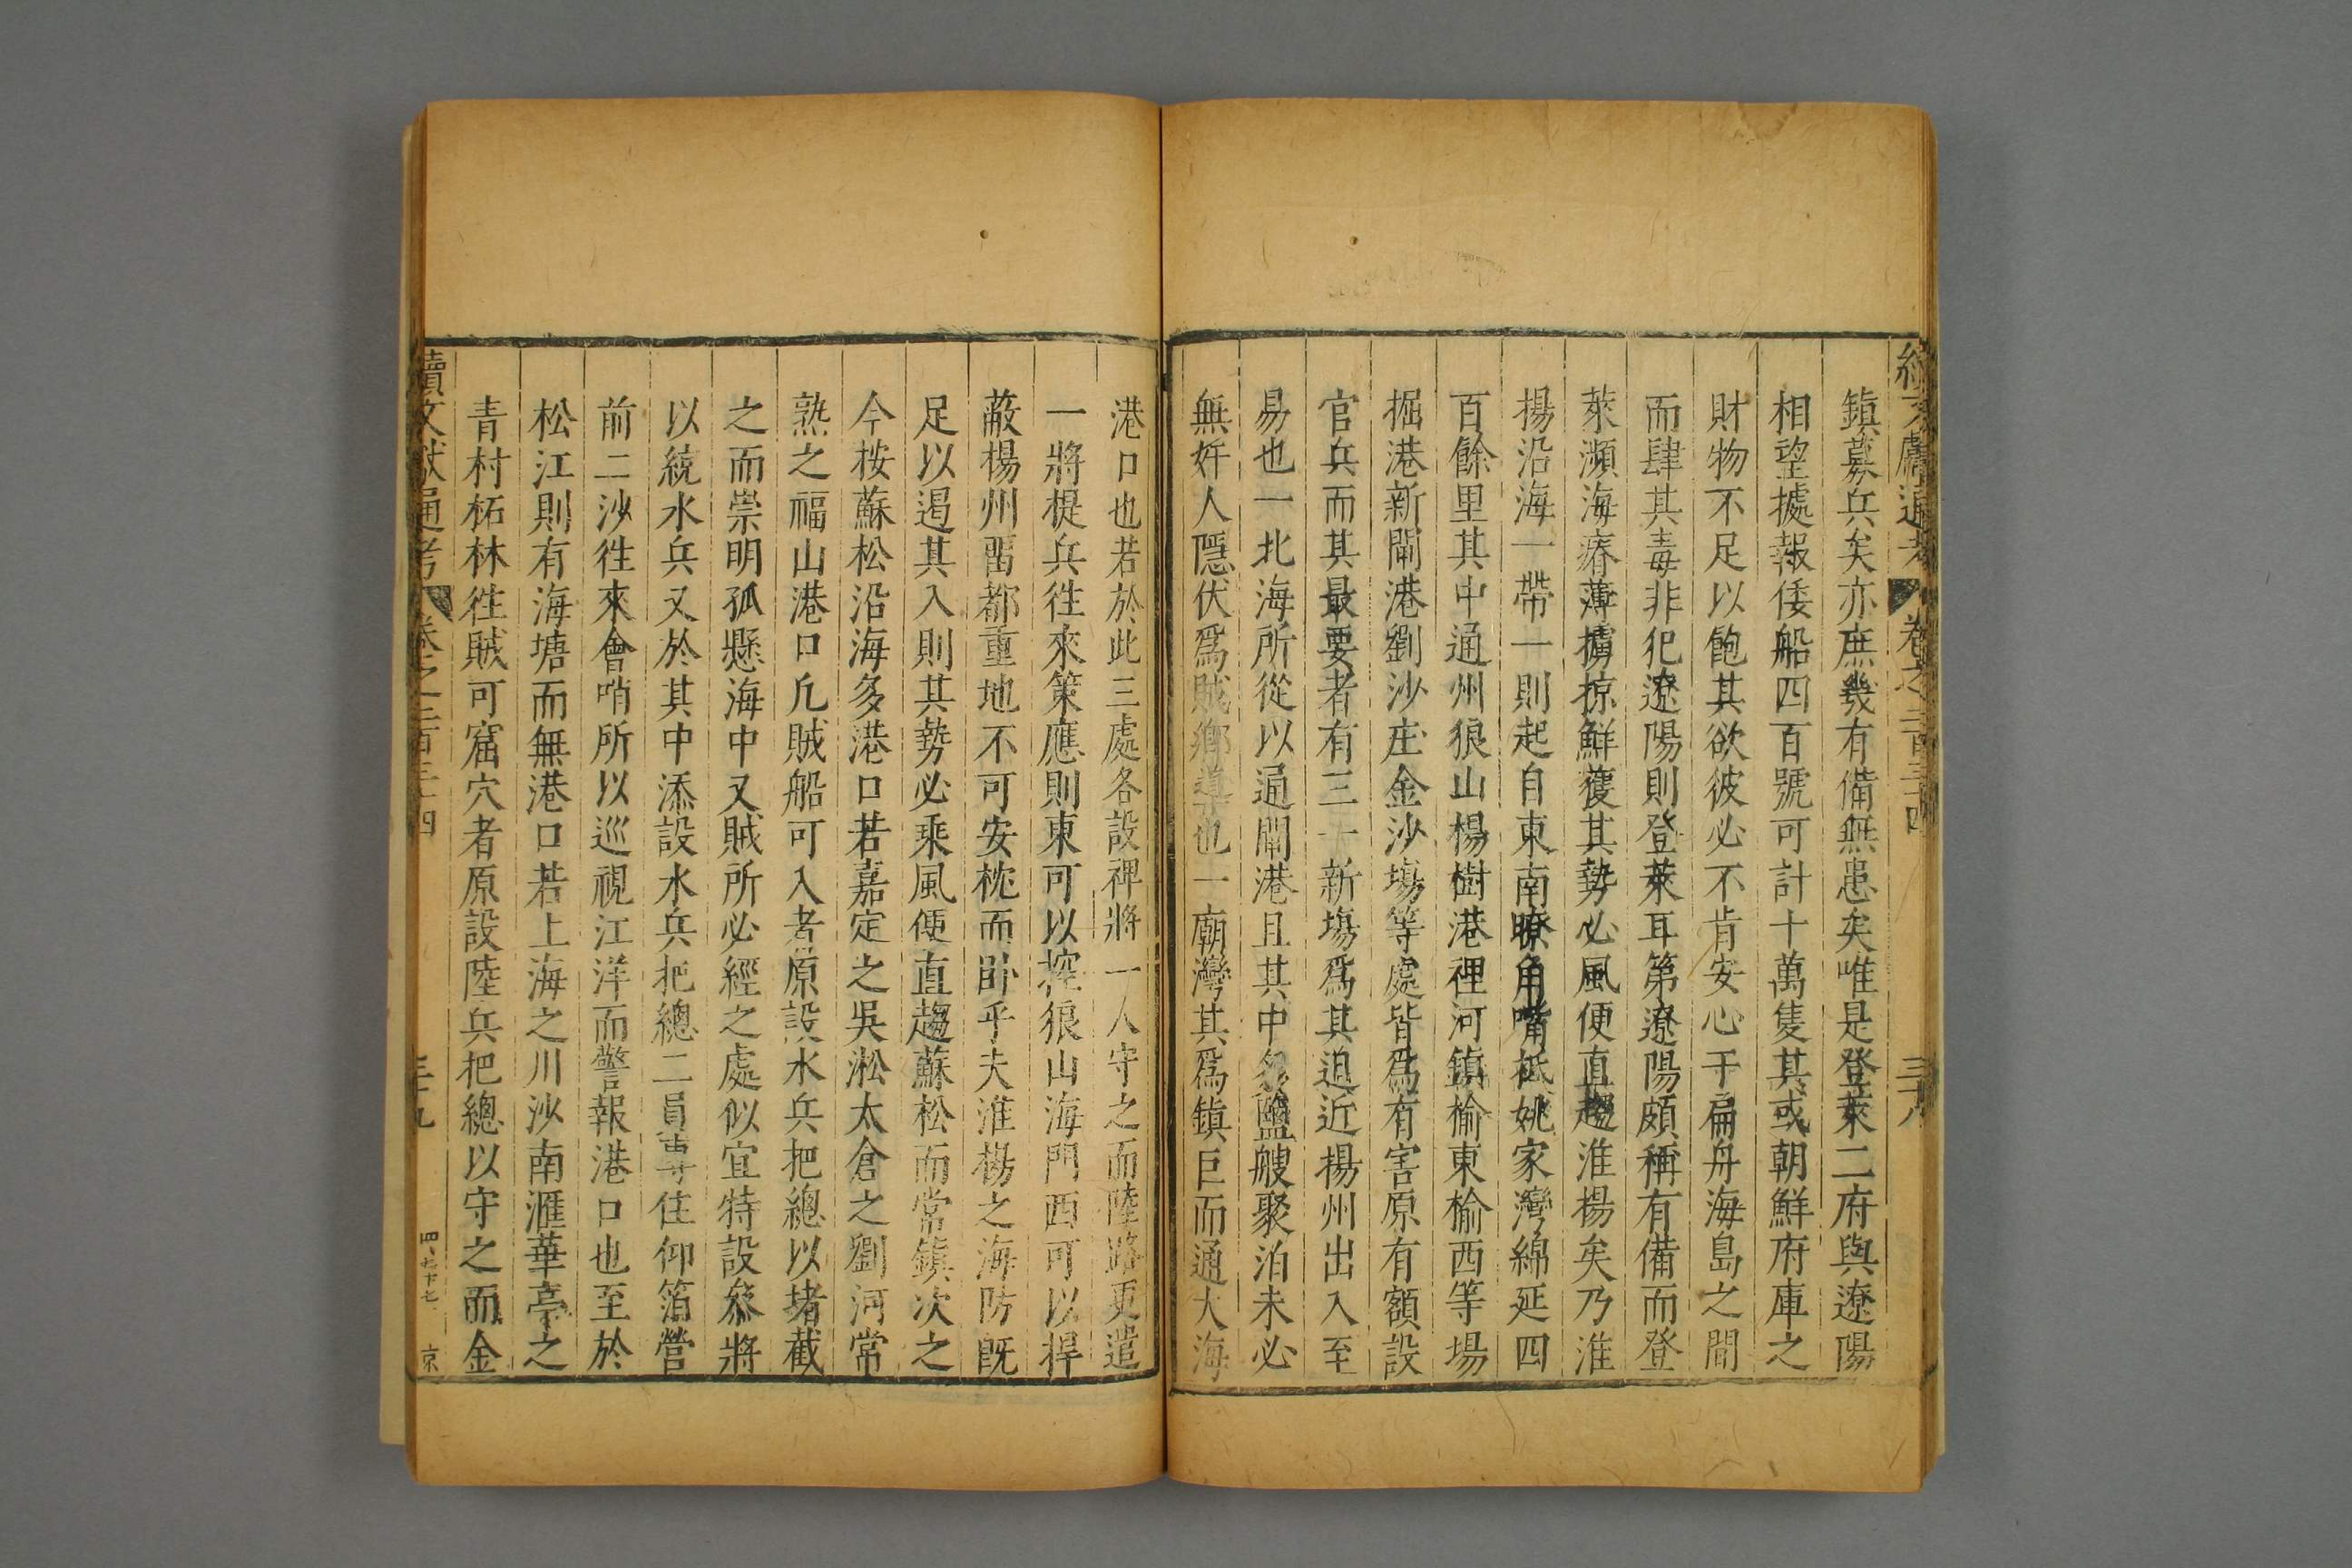 續文獻通考 卷之二百三十四 三十八
鎮募兵矣亦庶幾有備無患矣唯是登萊二府與遼陽
相望據報倭船四百號可計十萬隻其或朝鮮府庫之
財物不足以飽其欲彼必不肯安心于扁舟海島之間
而肆其毒非犯遼陽則登萊耳第遼陽頗稱有備而登
萊瀕海瘠薄擄掠鮮獲其勢必風便直趨淮揚矣乃淮
揚沿海一帶一則起自東南暸角嘴抵姚家灣綿延四
百餘里其中通州狼山楊樹港裡河鎮榆東榆西等場
掘港新閘港劉沙庄金沙塲等處皆為有害原有額設
官兵而其最要者有三一新塲爲其迫近揚州出入至
易也一北海所從以通閘港且其中多鹽艘聚泊未必
無奸人隱伏爲賊鄉導也一廟灣其爲鎮巨而通大海
港口也若於此三處各設裨將一人守之而陸路更遣
一將提兵往來策應則東可以控狼山海門西可以捍
蔽楊州畱都重地不可安枕而卧乎夫淮楊之海防既
足以遏其入則其勢必乘風便直趨蘇松而常鎮次之
今按蘇松沿海多港口若嘉定之吳淞太倉之劉河常
熟之福山港口凡賊船可入者原設水兵把總以堵截
之而崇明孤懸海中又賊所必經之處似宜特設叅將
以統水兵又於其中添設水兵把總二員專住仰箔營
前二沙徃來會哨所以巡視江洋而警報港口也至於
松江則有海塘而無港口若上海之川沙南滙華亭之
青村柘林徃賊可窟穴者原設陸兵把總以守之而金
續文獻通考 卷之二百三十四 三十九
京